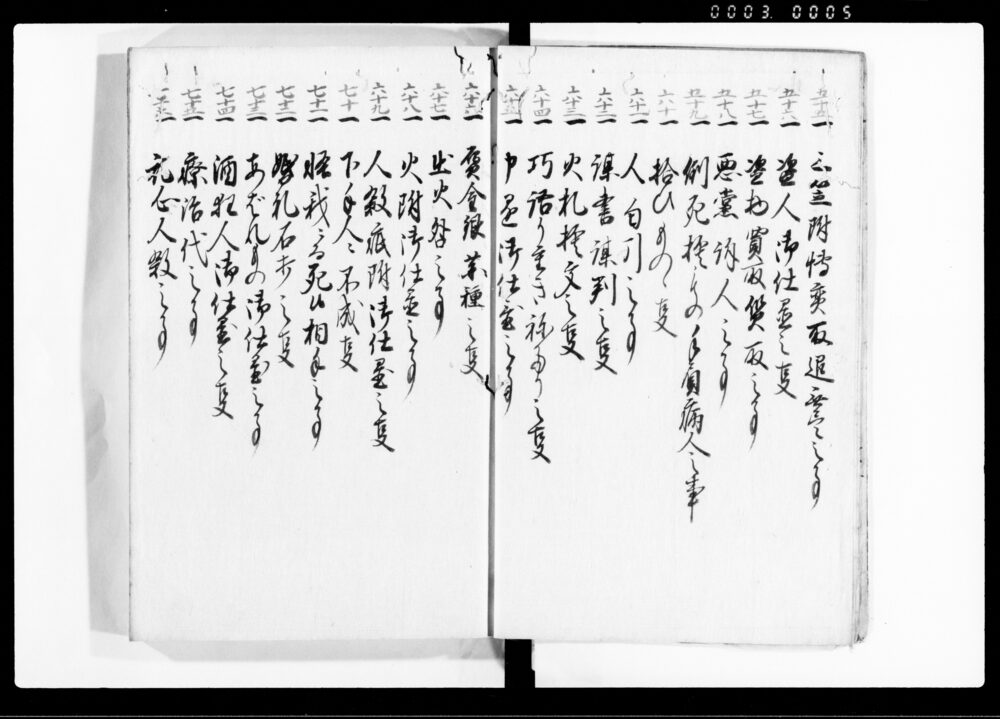 0003 0005
五十五一 三笠附博奕取退無尽之事
五十六一 盗人御仕置之事
五十七一 盗物買取質取之事
五十八一 悪党訴人之事
五十九一 倒死捨もの手負病人之事
六十一 拾ひもの之事
六十一一 人勾引之事
六十二一 謀書謀判之事
六十三一 火札捨文之事
六十四一 巧語り重きねたり之事
六十五一 御仕置之事
六十六一 贋金銀薬種之事
六十七一 出火咎之事
六十八一 火附御仕置之事
六十九一 人殺疵附御仕置之事
七十一 下手人ニ不成事
七十一一 怪我ニ而死候相手之事
七十二一 婚礼石打之事
七十三一 あばれもの御仕置之事
七十四一 酒狂人御仕置之事
七十五一 療治代之事
一 乱心人殺之事